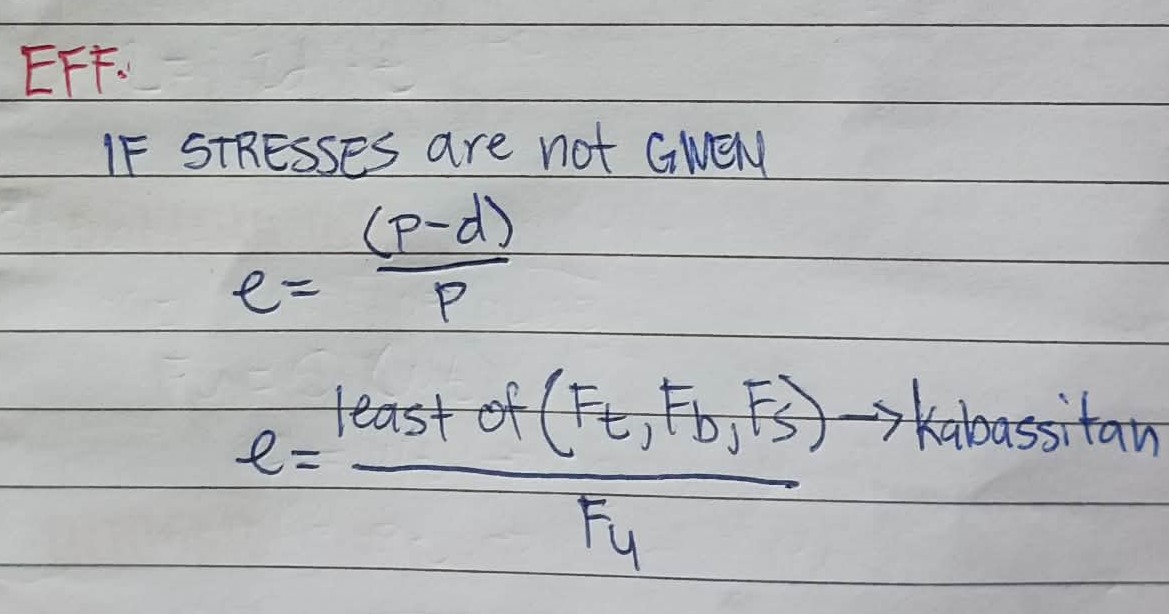 EFF.
IF STRESSES are not GIVEN
e = (p-d) / p
e = least of (Ft, Fb, Fs) → kabassitan / Fu